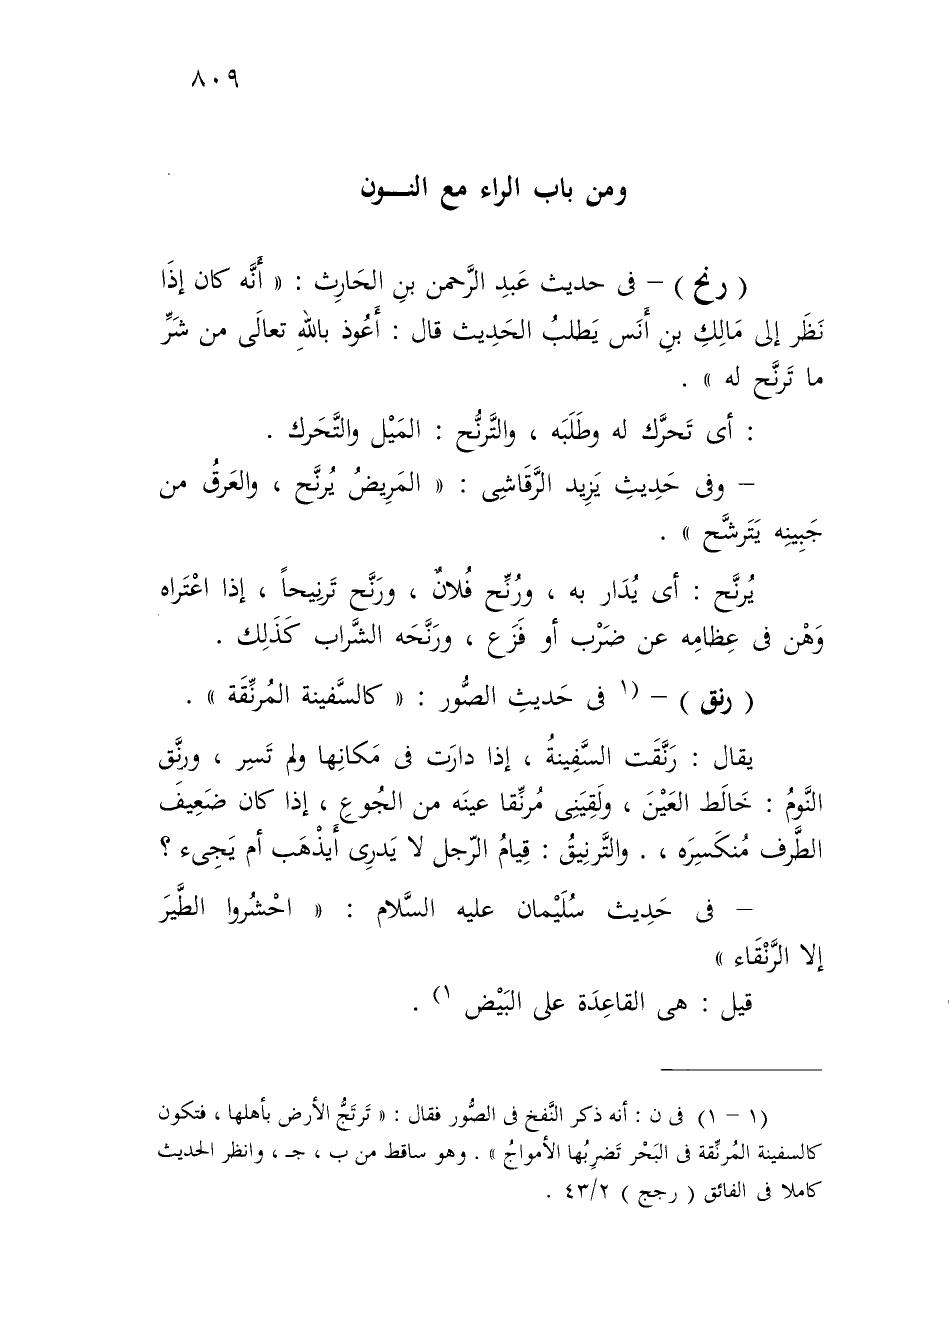 ٨٠٩
ومن باب الراء مع النـــون
( رنح ) – فى حديث عَبدِ الرَّحمن بنِ الحَارِث : « أَنَّه كان إذَا
نَظَر إلى مَالِكِ بنِ أَنَس يَطلبُ الحَدِيث قال : أَعُوذ باللهِ تعالَى من شَرِّ
ما تَرنَّح له » .
: أى تَحرَّك له وطَلَبَه ، والتَّرنُّح : المَيْل والتَّحَرك .
– وفى حَدِيثِ يَزِيد الرَّقَاشِى : « المَرِيضُ يُرنَّح ، والعَرقُ من
جَبِينِه يَتَرشَّح » .
يُرنَّح : أى يُدَار به ، ورُنِّح فُلانٌ ، ورَنَّح تَرنِيحاً ، إذا اعْتَراه
وَهْن فى عِظامِه عن ضَرْب أو فَزَع ، ورَنَّحَه الشَّراب كَذَلِك .
( رنق ) – (١ فى حَديثِ الصُّور : « كالسَّفينة المُرنِّقَة » .
يقال : رَنَّقَت السَّفِينةُ ، إذا دارَت فى مَكانِها ولم تَسِر ، ورنَّق
النَّومُ : خَالَط العَيْنَ ، ولَقِيَنِى مُرنِّقا عينَه من الجُوعِ ، إذا كان ضَعِيفَ
الطَّرف مُنكَسِرَه ، . والتَّرنِيقُ : قِيامُ الرّجل لا يَدرِى أَيذْهَب أم يَجِىء ؟
– فى حَدِيث سُلَيْمان عليه السَّلام : « احْشُروا الطَّيرَ
إلا الرَّنْقَاء »
قيل : هى القاعِدَة على البَيْض ١) .
(١ – ١) فى ن : أنه ذكر النَّفخ فى الصُّور فقال : « تَرتَجُّ الأرض بأهلها ، فتكون
كالسفينة المُرنِّقة فى البَحْر تَضرِبُها الأمواجُ » . وهو ساقط من ب ، جـ ، وانظر الحديث
كاملا فى الفائق ( رجج ) ٤٣/٢ .